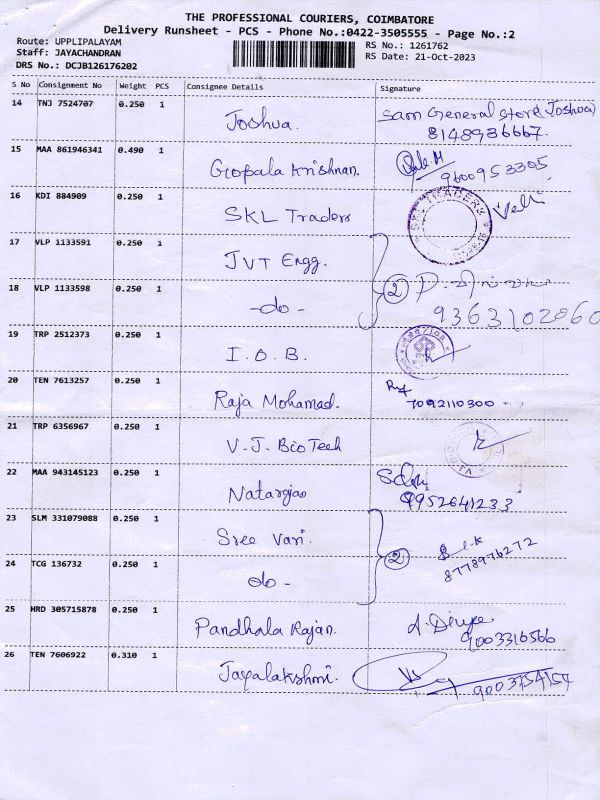 THE PROFESSIONAL COURIERS, COIMBATORE
Delivery Runsheet - PCS - Phone No.:0422-3505555 - Page No.:2
Route: UPPLIPALAYAM
Staff: JAYACHANDRAN
DRS No.: DCJB126176202
RS No.: 1261762
RS Date: 21-Oct-2023
S No Consignment No Weight PCS Consignee Details Signature
14 TNJ 7524707 0.250 1 Joshua. Sam General Store (Joshua)
8148936667.
15 MAA 861946341 0.490 1 Gopala Krishnan. 9600953305
16 KDI 884909 0.250 1 SKL Traders
17 VLP 1133591 0.250 1 JVT Engg.
18 VLP 1133598 0.250 1 -do- 2
9363102060
19 TRP 2512373 0.250 1 I.O.B.
20 TEN 7613257 0.250 1 Raja Mohamad. 7092110300
21 TRP 6356967 0.250 1 V.J. BioTech
22 MAA 943145123 0.250 1 Natarajan
9952641233
23 SLM 331079088 0.250 1 Sree Vari.
24 TCG 136732 0.250 1 do - 2 8778976272
25 HRD 305715878 0.250 1 Pandhala Rajan. A. Divya
9003316566
26 TEN 7606922 0.310 1 Jayalakshmi. 9003754154